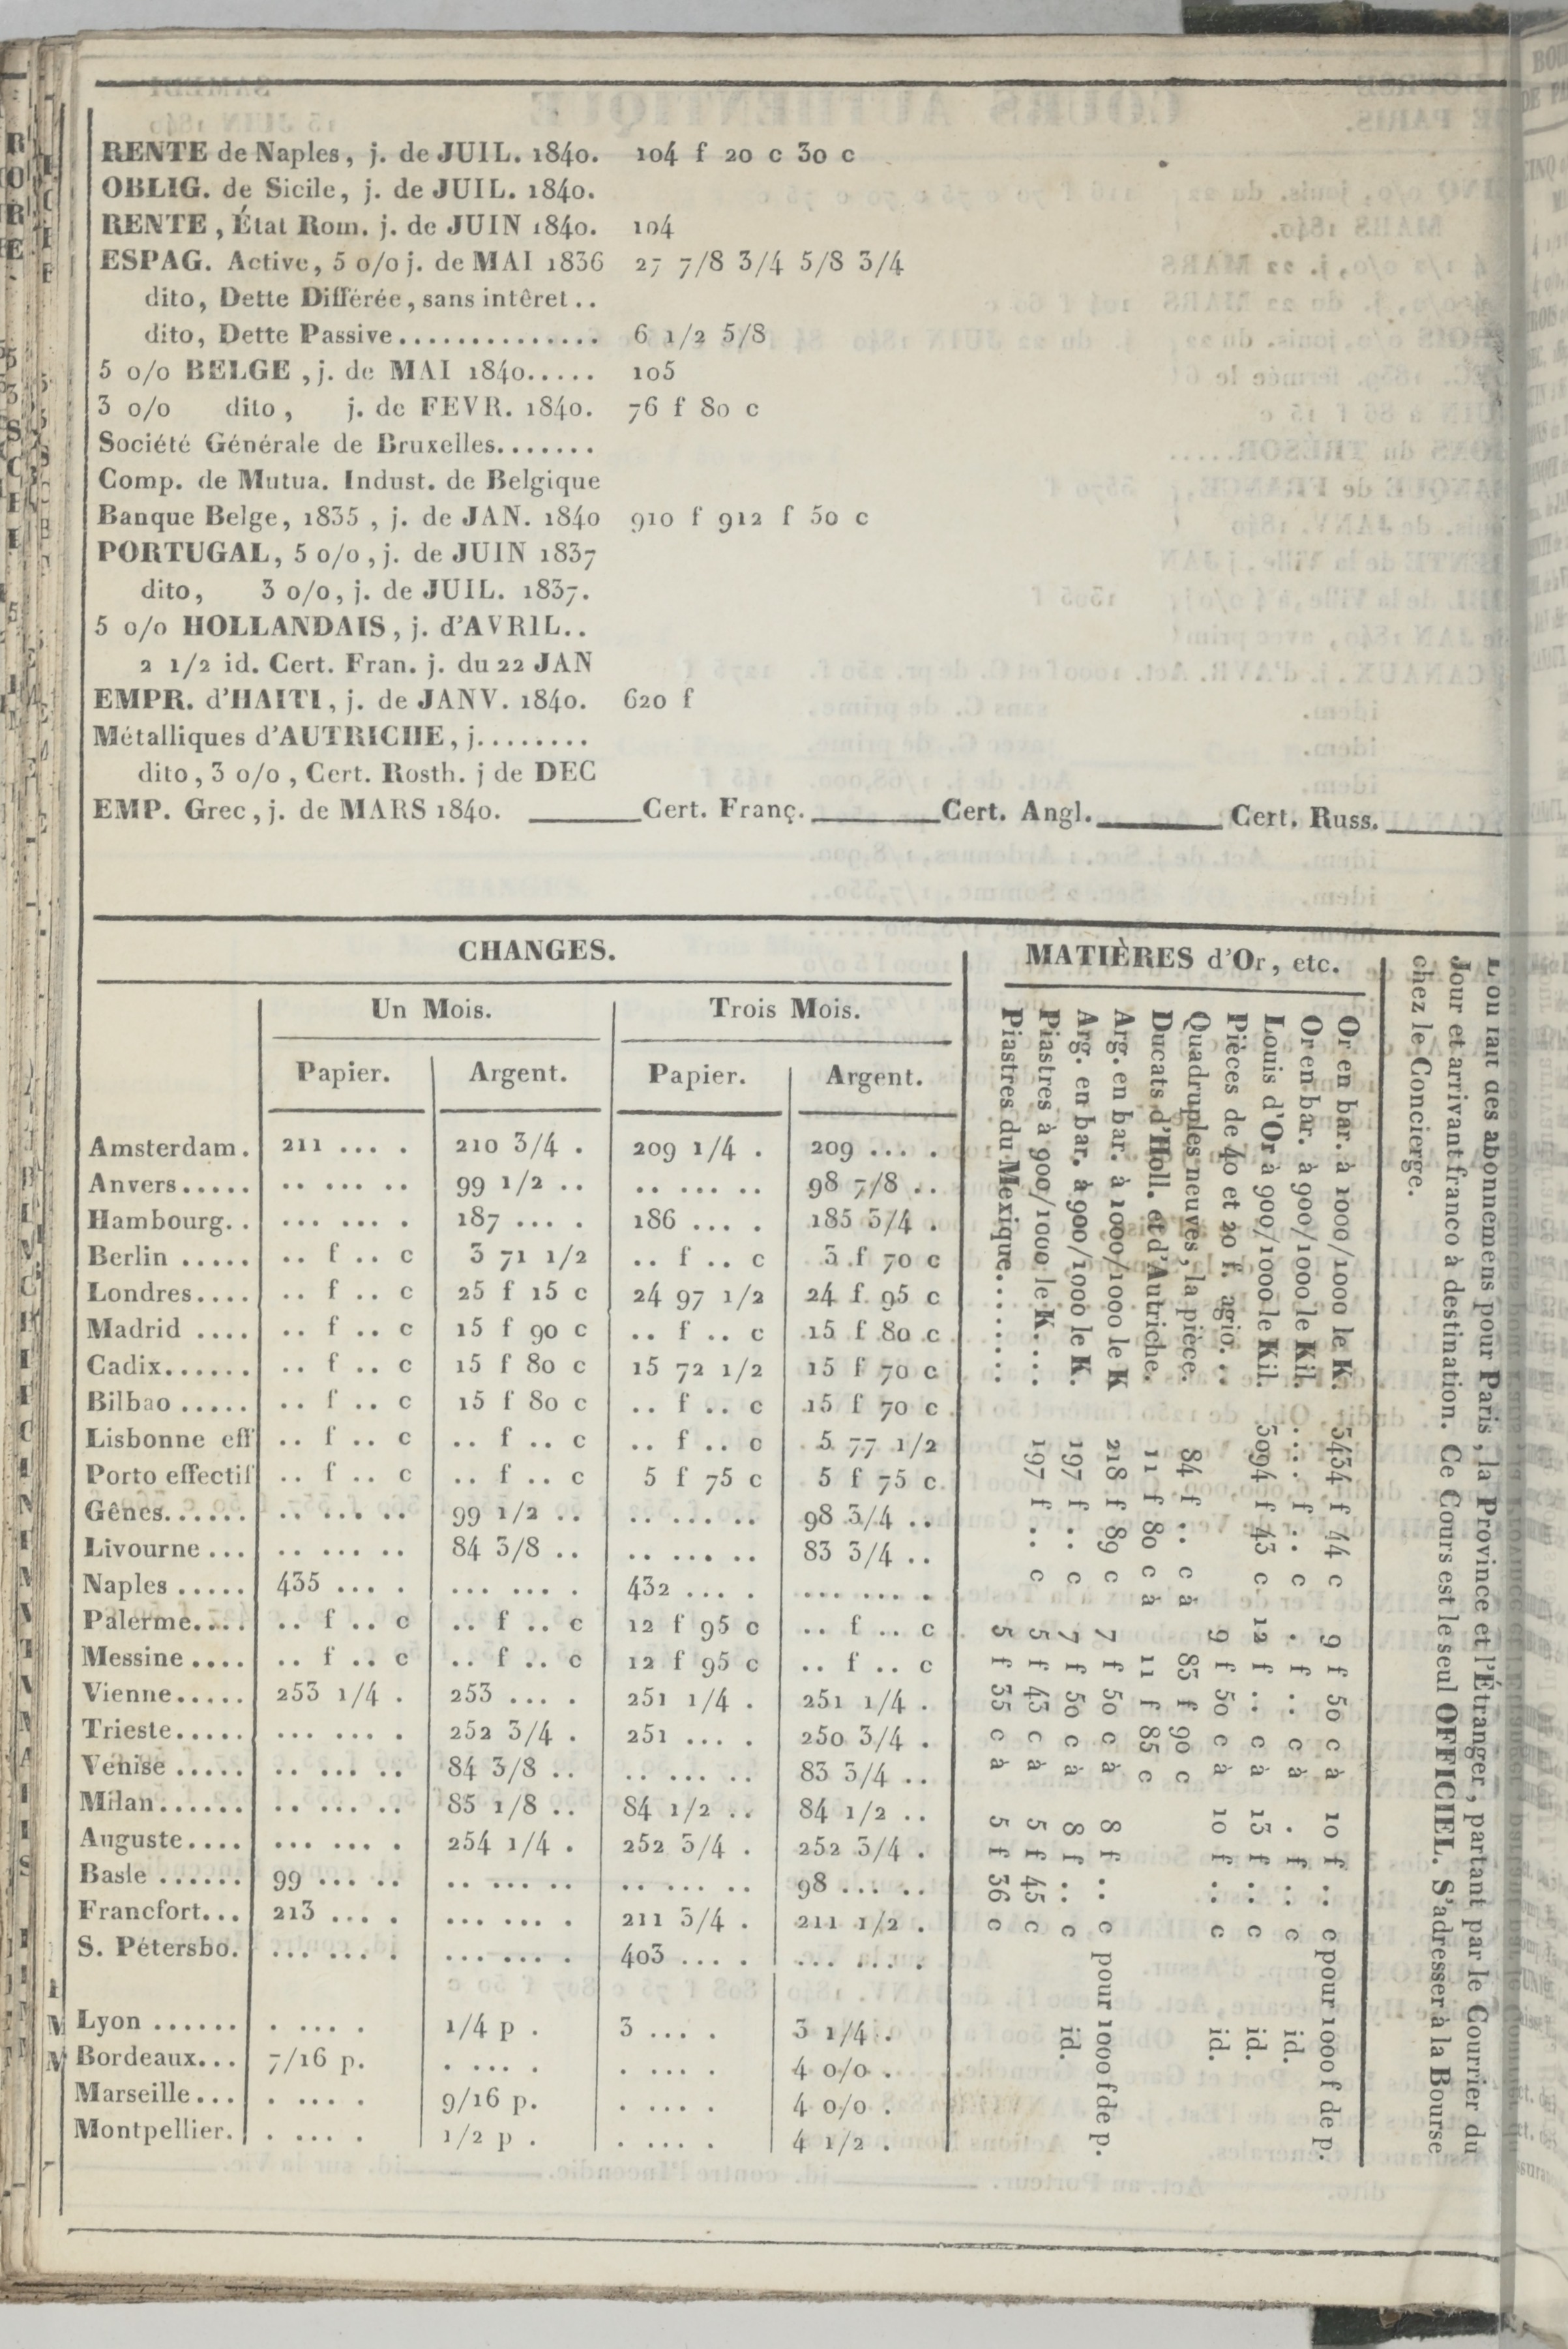 RENTE de Naples, j. de JUIL. 1840. 104 f 20 c 30 c
OBLIG. de Sicile, j. de JUIL. 1840.
RENTE, État Rom. j. de JUIN 1840. 104
ESPAG. Active, 5 o/o j. de MAI 1836 27 7/8 3/4 5/8 3/4
dito, Dette Différée, sans intêret..
dito, Dette Passive.............. 6 1/2 5/8
5 o/o BELGE, j. de MAI 1840..... 105
3 o/o dito, j. de FEVR. 1840. 76 f 80 c
Société Générale de Bruxelles.......
Comp. de Mutua. Indust. de Belgique
Banque Belge, 1835, j. de JAN. 1840 910 f 912 f 50 c
PORTUGAL, 5 o/o, j. de JUIN 1837
dito, 3 o/o, j. de JUIL. 1837.
5 o/o HOLLANDAIS, j. d'AVRIL..
2 1/2 id. Cert. Fran. j. du 22 JAN
EMPR. d'HAITI, j. de JANV. 1840. 620 f
Métalliques d'AUTRICHE, j........
dito, 3 o/o, Cert. Rosth. j de DEC
EMP. Grec, j. de MARS 1840. ______Cert. Franç.______Cert. Angl.______Cert. Russ.______
CHANGES.
Un Mois. Trois Mois.
Papier. Argent. Papier. Argent.
Amsterdam. 211 ... . 210 3/4 . 209 1/4 . 209 ... .
Anvers..... .. ... .. 99 1/2 .. .. ... .. 98 7/8 ..
Hambourg.. ... ... . 187 ... . 186 ... . 185 3/4 .
Berlin ..... .. f .. c 3 71 1/2 .. f .. c 3 f 70 c
Londres.... .. f .. c 25 f 15 c 24 97 1/2 24 f 95 c
Madrid .... .. f .. c 15 f 90 c .. f .. c 15 f 80 c
Cadix...... .. f .. c 15 f 80 c 15 72 1/2 15 f 70 c
Bilbao ..... .. f .. c 15 f 80 c .. f .. c 15 f 70 c
Lisbonne eff .. f .. c .. f .. c .. f .. c 5 77 1/2
Porto effectif .. f .. c .. f .. c 5 f 75 c 5 f 75 c
Gênes...... .. ... .. 99 1/2 .. .. ... .. 98 3/4 ..
Livourne ... .. ... .. 84 3/8 .. .. ... .. 83 3/4 ..
Naples ..... 435 ... . ... ... . 432 ... . ... ... .
Palerme.... .. f .. c .. f .. c 12 f 95 c .. f .. c
Messine .... .. f .. c .. f .. c 12 f 95 c .. f .. c
Vienne..... 253 1/4 . 253 ... . 251 1/4 . 251 1/4 .
Trieste..... ... ... . 252 3/4 . 251 ... . 250 3/4 .
Venise ..... .. ... .. 84 3/8 .. .. ... .. 83 3/4 ..
Milan...... .. ... .. 85 1/8 .. 84 1/2 .. 84 1/2 ..
Auguste.... ... ... . 254 1/4 . 252 3/4 . 252 3/4 .
Basle ...... 99 ... .. .. ... .. .. ... .. 98 ... ..
Francfort... 213 ... . ... ... . 211 3/4 . 211 1/2 .
S. Pétersbo. ... ... . ... ... . 403 ... . ... ... .
Lyon ...... . ... . 1/4 p . 3 ... . 3 1/4 .
Bordeaux... 7/16 p. . ... . . ... . 4 o/o .
Marseille... . ... . 9/16 p. . ... . 4 o/o .
Montpellier. . ... . 1/2 p . . ... . 4 1/2 .
MATIÈRES d'Or, etc.
Or en bar. à 1000/1000 le K. 3434 f 44 c 9 f 50 c à 10 f .. c pour 1000 f de p.
Or en bar. à 900/1000 le Kil. ... f .. c . f .. c à . f .. c id.
Louis d'Or à 900/1000 le Kil. 3094 f 43 c 12 f .. c à 13 f .. c id.
Pièces de 40 et 20 f. agio... 9 f 50 c à 10 f .. c id.
Quadruples neuves, la pièce. 84 f .. c à 83 f 90 c
Ducats d'Holl. et d'Autriche. 11 f 80 c à 11 f 85 c
Arg. en bar. à 1000/1000 le K 218 f 89 c 7 f 50 c à 8 f .. c pour 1000 f de p.
Arg. en bar. à 900/1000 le K. 197 f .. c 7 f 50 c à 8 f .. c id.
Piastres à 900/1000 le K.... 197 f .. c 5 f 43 c à 5 f 45 c
Piastres du Mexique....... 5 f 35 c à 5 f 36 c
L'on fait des abonnemens pour Paris, la Province et l'Étranger, partant par le Courrier du
Jour et arrivant franco à destination. Ce Cours est le seul OFFICIEL. S'adresser à la Bourse
chez le Concierge.